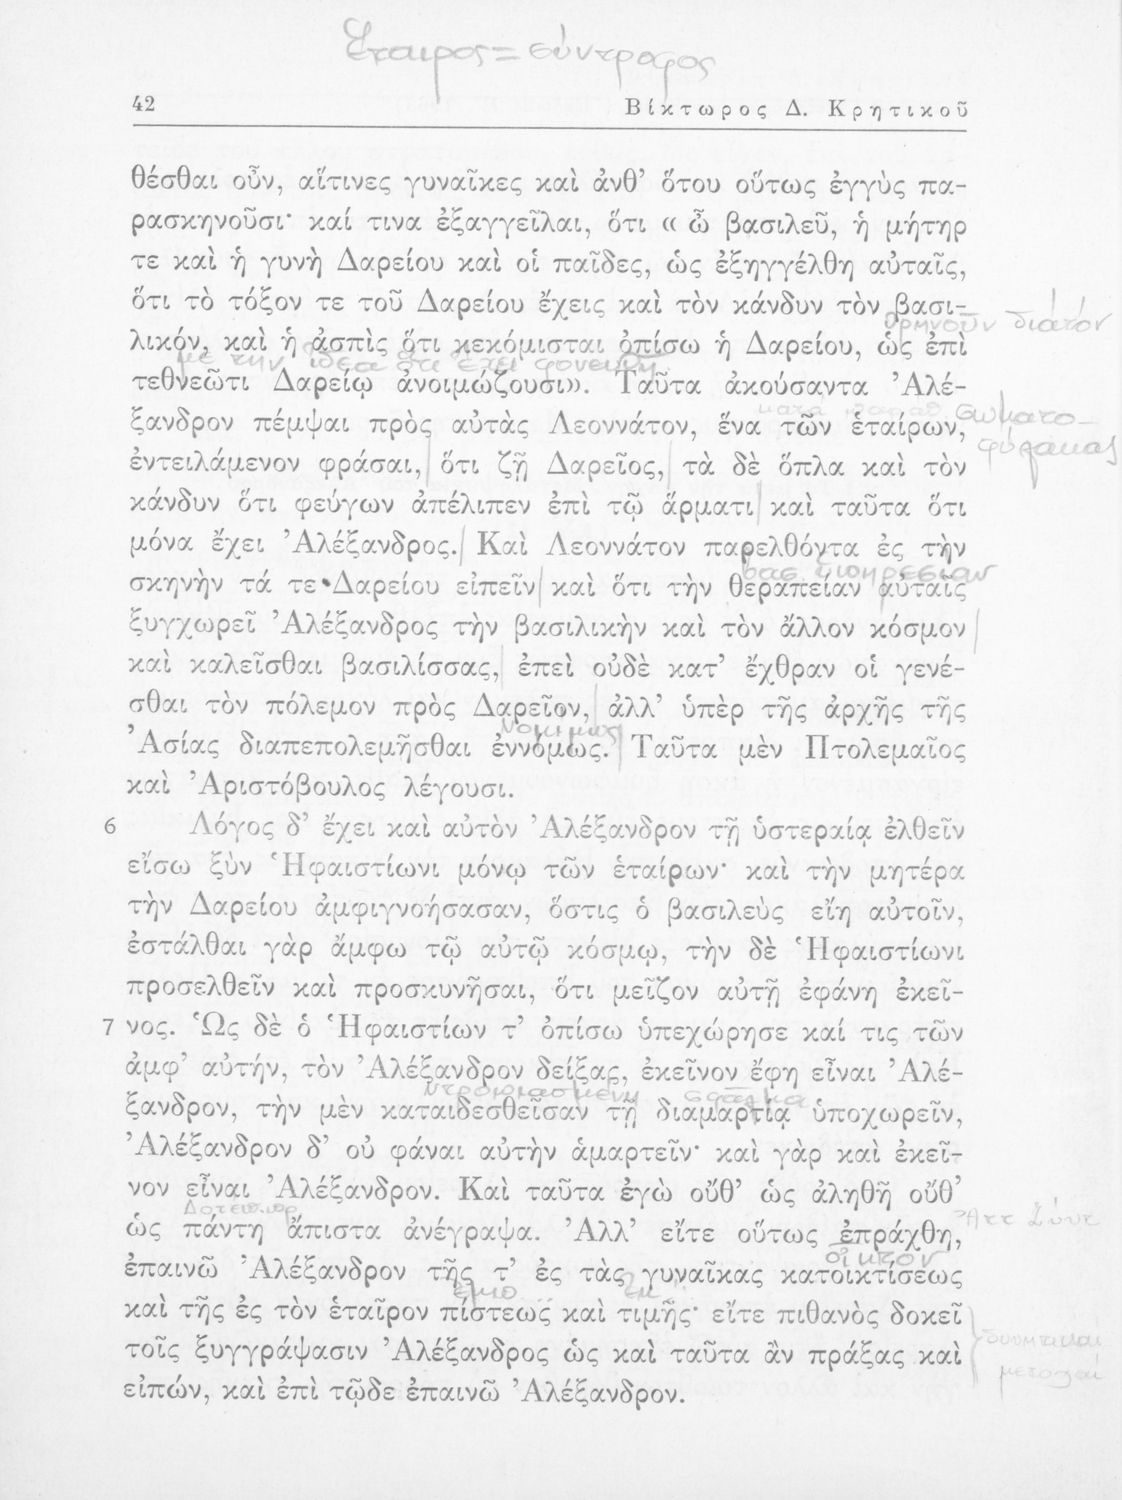 Ἑταιρος = σύντροφος
42 Βίκτωρος Δ. Κρητικοῦ
θέσθαι οὖν, αἵτινες γυναῖκες καὶ ἀνθ’ ὅτου οὕτως ἐγγὺς πα-
ρασκηνοῦσι· καί τινα ἐξαγγεῖλαι, ὅτι « ὦ βασιλεῦ, ἡ μήτηρ
τε καὶ ἡ γυνὴ Δαρείου καὶ οἱ παῖδες, ὡς ἐξηγγέλθη αὐταῖς,
ὅτι τὸ τόξον τε τοῦ Δαρείου ἔχεις καὶ τὸν κάνδυν τὸν βασι-
θρηνοῦν διὰ τόν
λικόν, καὶ ἡ ἀσπὶς ὅτι κεκόμισται ὀπίσω ἡ Δαρείου, ὡς ἐπὶ
με την ιδεα ότι έχει φονευθῆ
τεθνεῶτι Δαρείῳ ἀνοιμώζουσι». Ταῦτα ἀκούσαντα ’Αλέ-
σωματο-
ξανδρον πέμψαι πρὸς αὐτὰς Λεοννάτον, ἕνα τῶν ἑταίρων,
φύλακας
ἐντειλάμενον φράσαι, ὅτι ζῇ Δαρεῖος, τὰ δὲ ὅπλα καὶ τὸν
κάνδυν ὅτι φεύγων ἀπέλιπεν ἐπὶ τῷ ἅρματι καὶ ταῦτα ὅτι
μόνα ἔχει ’Αλέξανδρος. Καὶ Λεοννάτον παρελθόντα ἐς τὴν
βασ. ὑπηρεσίαν
σκηνὴν τά τε Δαρείου εἰπεῖν καὶ ὅτι τὴν θεραπείαν αὐταῖς
ξυγχωρεῖ ’Αλέξανδρος τὴν βασιλικὴν καὶ τὸν ἄλλον κόσμον
καὶ καλεῖσθαι βασιλίσσας, ἐπεὶ οὐδὲ κατ’ ἔχθραν οἱ γενέ-
σθαι τὸν πόλεμον πρὸς Δαρεῖον, ἀλλ’ ὑπὲρ τῆς ἀρχῆς τῆς
Νομίμως
’Ασίας διαπεπολεμῆσθαι ἐννόμως. Ταῦτα μὲν Πτολεμαῖος
καὶ ’Αριστόβουλος λέγουσι.
6 Λόγος δ’ ἔχει καὶ αὐτὸν ’Αλέξανδρον τῇ ὑστεραίᾳ ἐλθεῖν
εἴσω ξὺν ‘Ηφαιστίωνι μόνῳ τῶν ἑταίρων· καὶ τὴν μητέρα
τὴν Δαρείου ἀμφιγνοήσασαν, ὅστις ὁ βασιλεὺς εἴη αὐτοῖν,
ἐστάλθαι γὰρ ἄμφω τῷ αὐτῷ κόσμῳ, τὴν δὲ ‘Ηφαιστίωνι
προσελθεῖν καὶ προσκυνῆσαι, ὅτι μεῖζον αὐτῇ ἐφάνη ἐκεῖ-
7 νος. ‘Ως δὲ ὁ ‘Ηφαιστίων τ’ ὀπίσω ὑπεχώρησε καί τις τῶν
ἀμφ’ αὐτήν, τὸν ’Αλέξανδρον δείξας, ἐκεῖνον ἔφη εἶναι ’Αλέ-
ντροπιασμένη σφάλμα
ξανδρον, τὴν μὲν καταιδεσθεῖσαν τῇ διαμαρτίᾳ ὑποχωρεῖν,
’Αλέξανδρον δ’ οὐ φάναι αὐτὴν ἁμαρτεῖν· καὶ γὰρ καὶ ἐκεῖ-
νον εἶναι ’Αλέξανδρον. Καὶ ταῦτα ἐγὼ οὔθ’ ὡς ἀληθῆ οὔθ’
ὡς πάντη ἄπιστα ἀνέγραψα. ’Αλλ’ εἴτε οὕτως ἐπράχθη,
οἶκτον
ἐπαινῶ ’Αλέξανδρον τῆς τ’ ἐς τὰς γυναῖκας κατοικτίσεως
καὶ τῆς ἐς τὸν ἑταῖρον πίστεως καὶ τιμῆς· εἴτε πιθανὸς δοκεῖ
τοῖς ξυγγράψασιν ’Αλέξανδρος ὡς καὶ ταῦτα ἂν πράξας καὶ
εἰπών, καὶ ἐπὶ τῷδε ἐπαινῶ ’Αλέξανδρον.